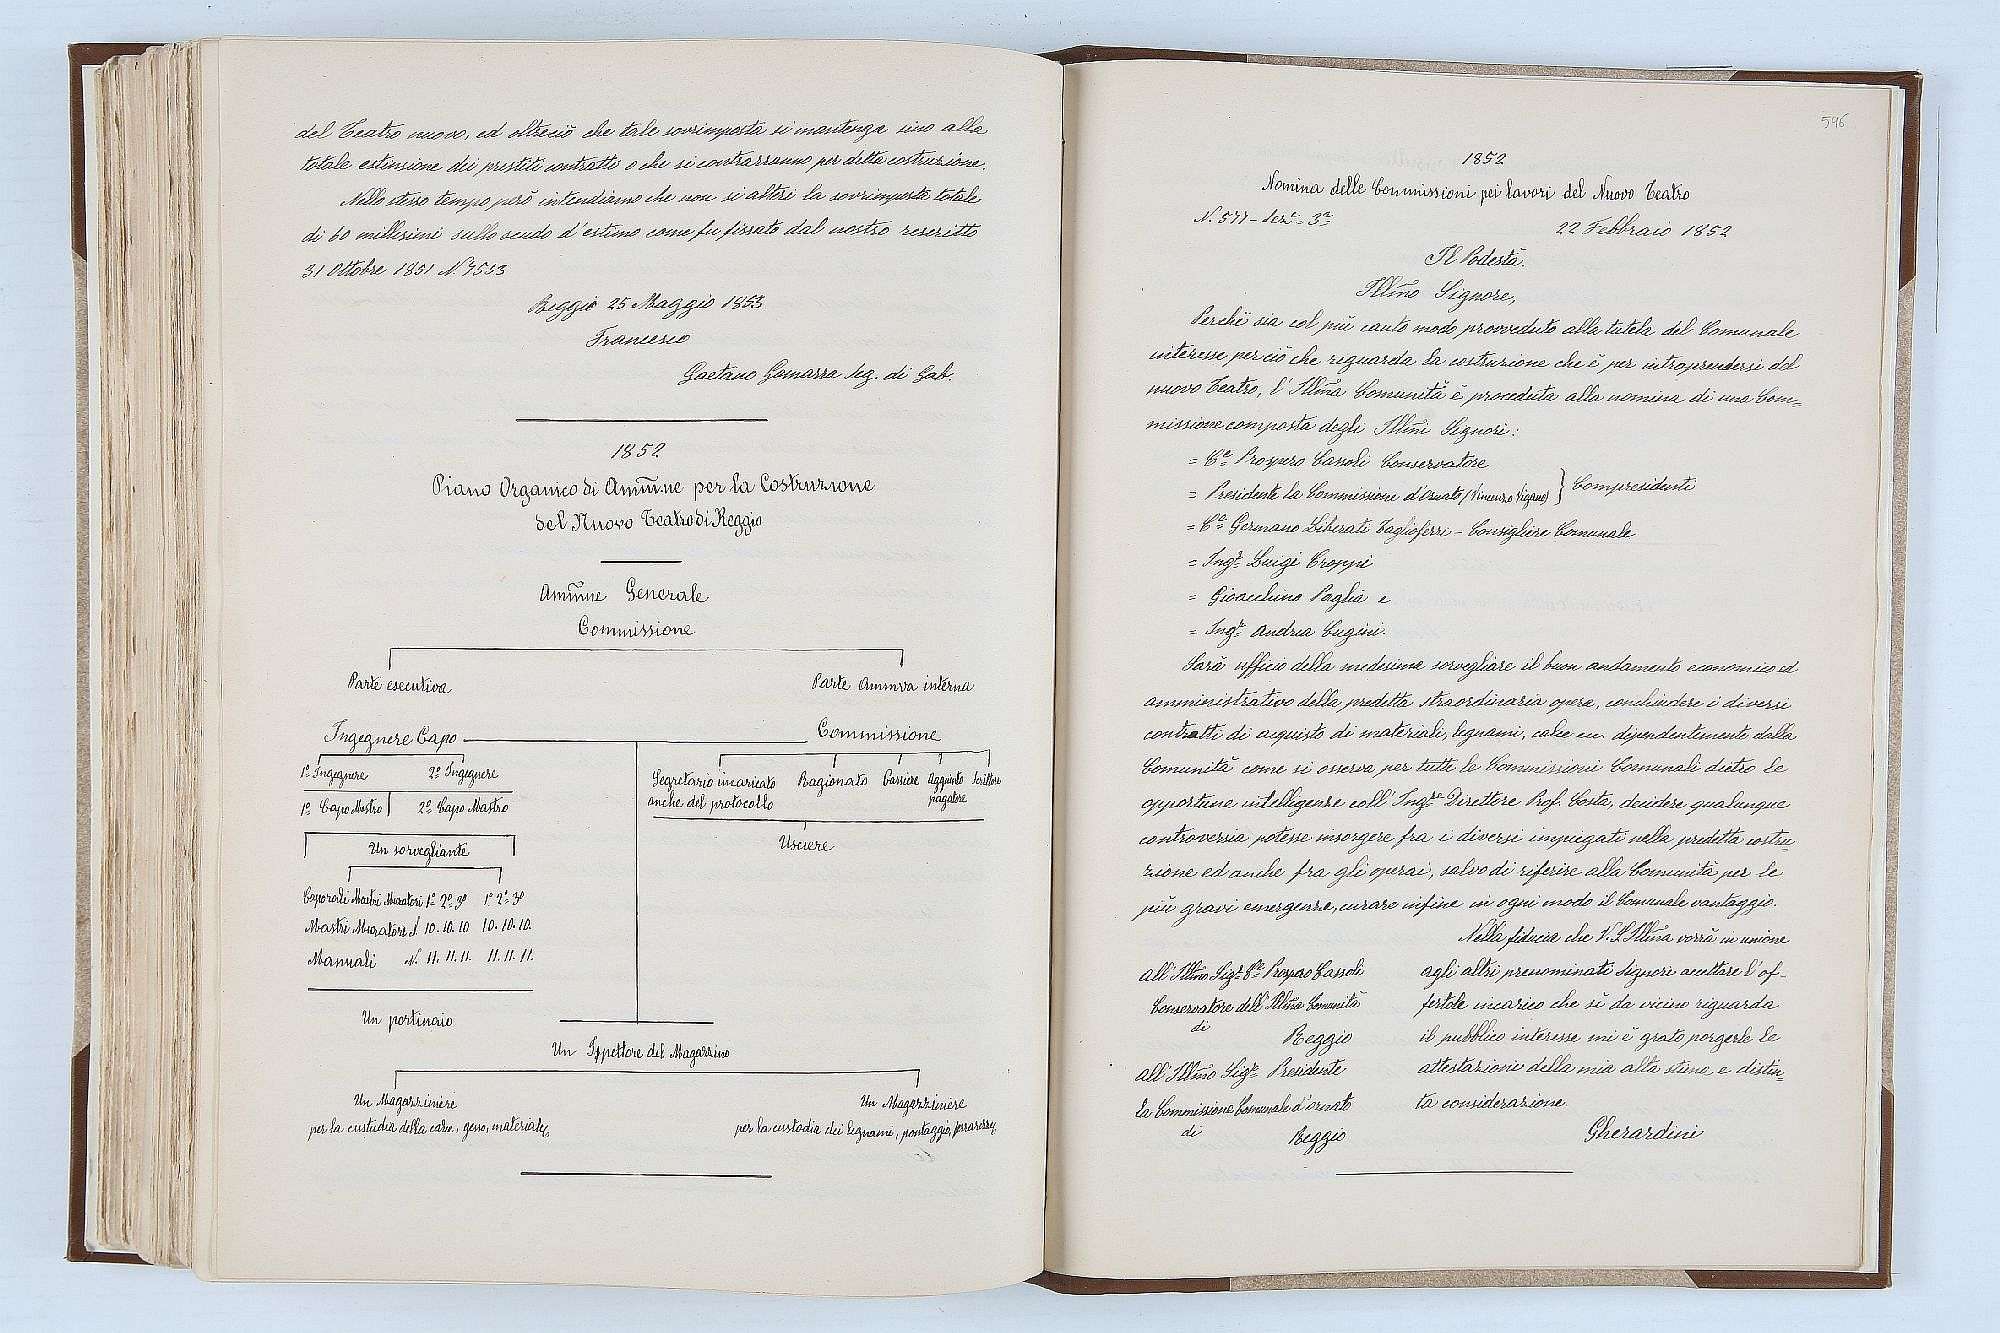 del Teatro nuovo, ed oltreciò che tale sovrimposta si mantenga sino alla
totale estensione dei prestiti contratti o che si contrarranno per detta costruzione.
Nello stesso tempo però intendiamo che non si alteri la sovrimposta totale
di 60 millesimi sullo scudo d'estimo come fu fissato dal nostro rescritto
31 Ottobre 1851 N. 4533
Reggio 25 Maggio 1853
Francesco
Gaetano Gamorra Seg. di Gab.
1852
Piano Organico di Ammne per la Costruzione
del Nuovo Teatro di Reggio
Ammne Generale
Commissione
Parte esecutiva
Parte Ammva interna
Ingegnere Capo
Commissione
1º Ingegnere 2º Ingegnere
Segretario incaricato anche del protocollo
Ragionato
Cassiere
Aggiunto pagatore
Scrittore
1º Capo Mastro 2º Capo Mastro
Usciere
Un sorvegliante
Caporali Mastri Muratori 1º 2º 3º 1º 2º 3º
Mastri Muratori N. 10. 10. 10 10. 10. 10.
Manuali N. 11. 11. 11. 11. 11. 11.
Un portinaio
Un Ispettore del Magazzino
Un Magazziniere
per la custodia della calce, geso, materiale,
Un Magazziniere
per la custodia dei legnami, pontaggio,
596
1852
Nomina delle Commissioni pei lavori del Nuovo Teatro
N. 577 - Sezne 3ª
22 Febbraio 1852
Il Podestà.
Illmo Signore,
Perchè sia col più cauto modo provveduto alla tutela del Comunale
interesse per ciò che reguarda la costruzione che è per intraprendersi del
nuovo Teatro, l'Illma Comunità è proceduta alla nomina di una Com=
missione composta degli Illmi Signori:
= Ce Prospero Cassoli Conservatore
= Presidente la Commissione d'ornato (Vincenzo Viganò) } Compresidenti
= Ce Germano Liberati Tagliaferri - Consigliere Comunale
= Ingr Luigi Croppi
= Gioacchino Paglia e
= Ingr Andrea Cugini.
Sarà ufficio della medesima sorvegliare il buon andamento economico ed
amministrativo della predetta straordinaria opera, conchiudere i diversi
contratti di acquisto di materiali, legnami, calce ecc. dipendentemente dalla
Comunità come si osserva per tutte le Commissioni Comunali dietro le
opportune intelligenze coll'Ingre Direttore Prof. Costa, decidere qualunque
controversia potesse insorgere fra i diversi impiegati nella predetta costru-
zione ed anche fra gli operai, salvo di riferire alla Comunità per le
più gravi emergenze, curare infine in ogni modo il Comunale vantaggio.
Nella fiducia che V. S. Illma vorrà in unione
agli altri prenominati Signori accettare l'of-
fertole incarico che sì da vicino riguarda
il pubblico interesse mi è grato porgerle le
attestazioni della mia alta stima e distin-
ta considerazione
Gherardini
All'Illmo Sigr Ce Prospero Cassoli
Conservatore dell'Illma Comunità
di
Reggio
All'Illmo Sigr Presidente
la Commissione Comunale d'ornato
di
Reggio